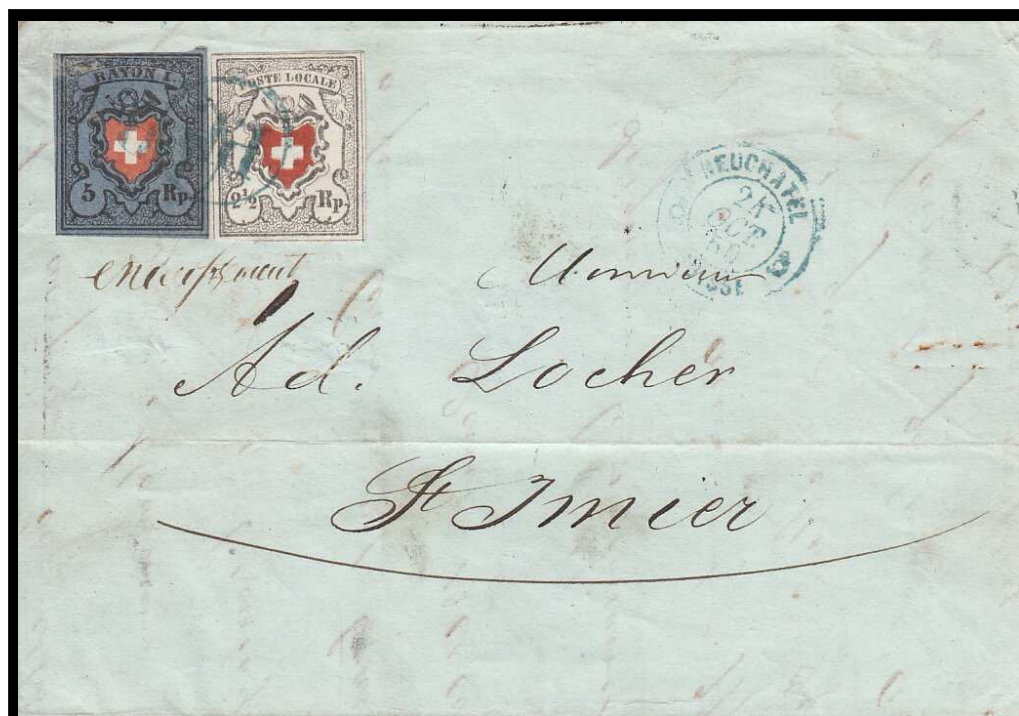 RAYON I.
5 Rp.
POSTE LOCALE
2½ Rp.
NEUCHATEL
OCT
SUISSE
Monsieur
Ad. Locher
St Imier